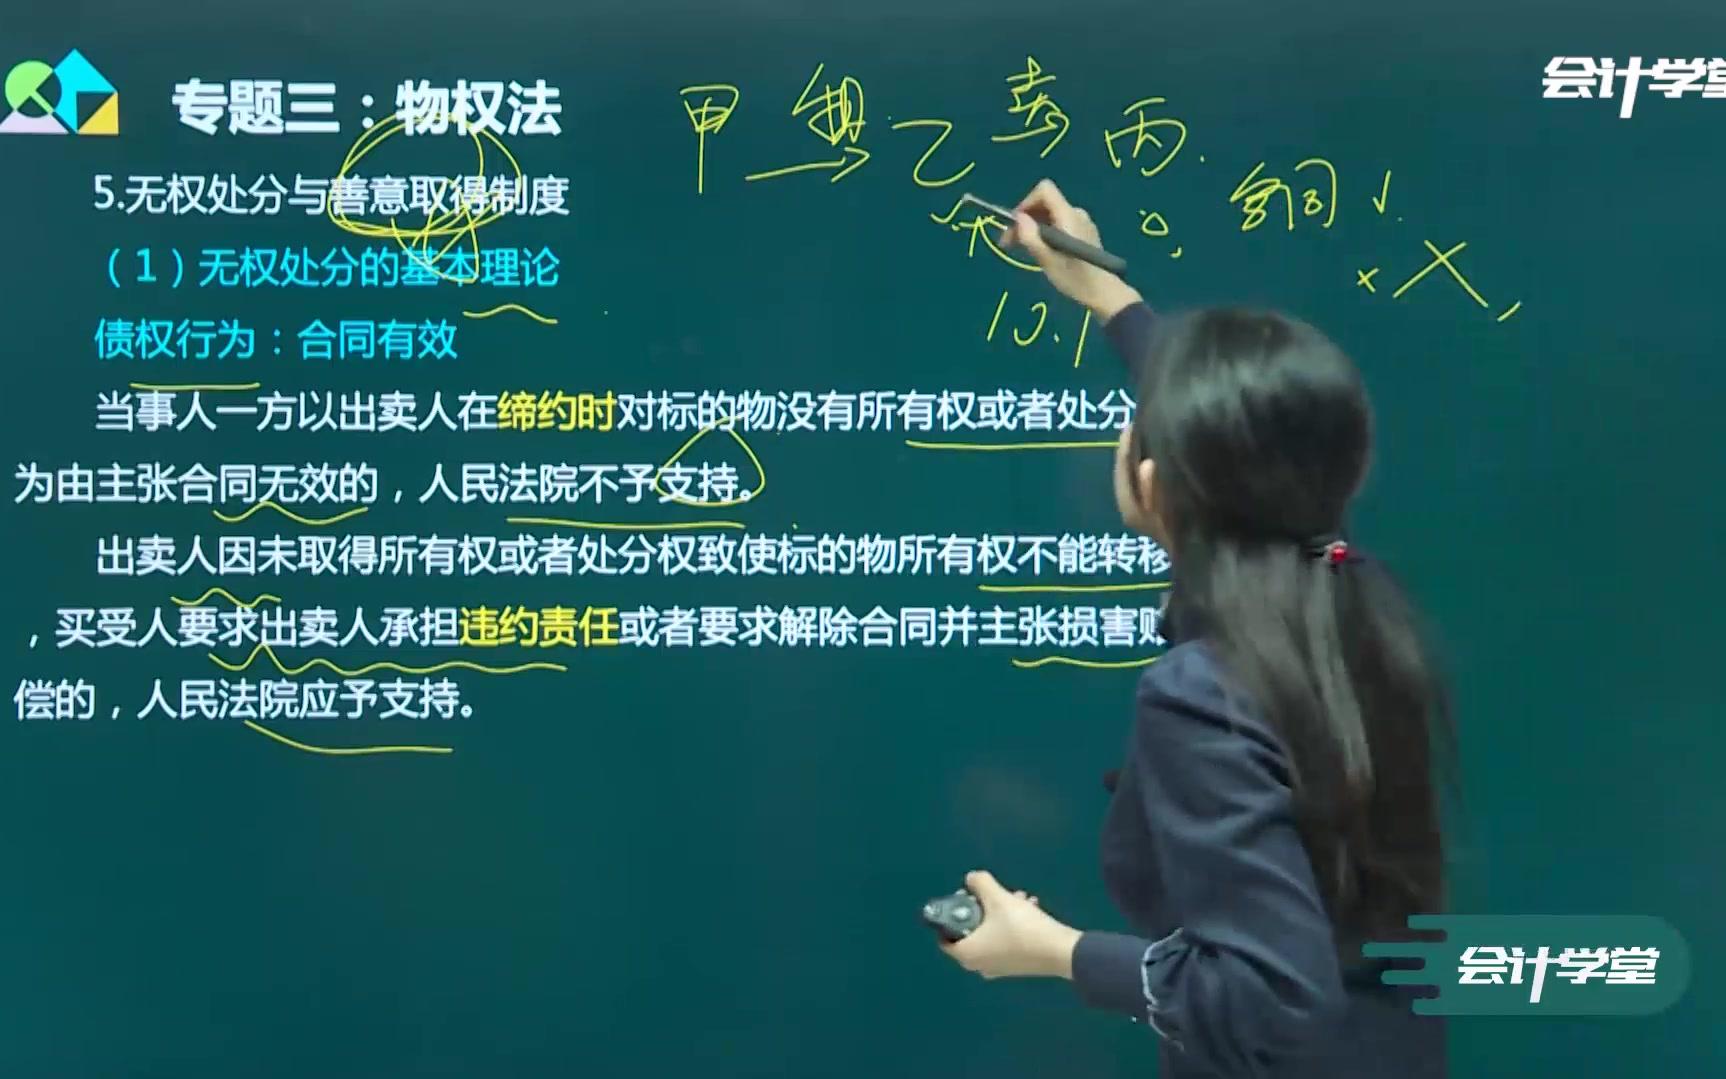 专题三：物权法
会计学堂
甲 乙 卖 丙
合同 √
× ×
10.1
5.无权处分与善意取得制度
（1）无权处分的基本理论
债权行为：合同有效
当事人一方以出卖人在缔约时对标的物没有所有权或者处分
为由主张合同无效的，人民法院不予支持。
出卖人因未取得所有权或者处分权致使标的物所有权不能转移
，买受人要求出卖人承担违约责任或者要求解除合同并主张损害赔
偿的，人民法院应予支持。
会计学堂